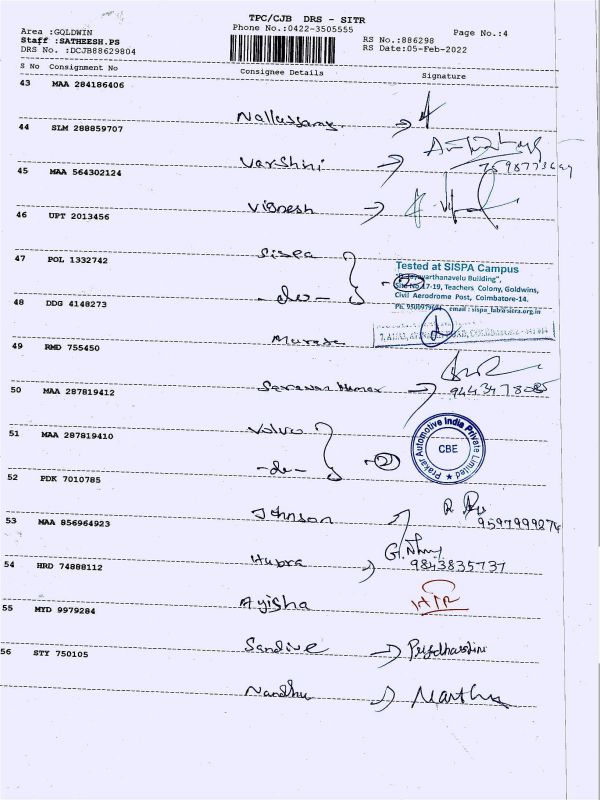 TPC/CJB DRS - SITR
Phone No.:0422-3505555
Area :GQLDWIN
Staff :SATHEESH.PS
DRS No. :DCJB88629804
RS No.:886298 Page No.:4
RS Date:05-Feb-2022
S No Consignment No Consignee Details Signature
43 MAA 284186406
Nallusamy
44 SLM 288859707
Varshini
7598773649
45 MAA 564302124
Vignesh
46 UPT 2013456
Sispa
47 POL 1332742
Tested at SISPA Campus
17-19, Teachers Colony, Goldwins,
Civil Aerodrome Post, Coimbatore-14.
email : sispa_lab@sitra.org.in
-do- 2
48 DDG 4148273
49 RMD 755450
Saravana Kumar
50 MAA 287819412
Volvo
Prakar Automotive India Private Limited
CBE
51 MAA 287819410
-do- 2
52 PDK 7010785
Johnson
9597999274
53 MAA 856964923
Hubra
9843835737
54 HRD 74888112
Ayisha
55 MYD 9979284
Sandive Priyadharshini
56 STY 750105
Nandhu